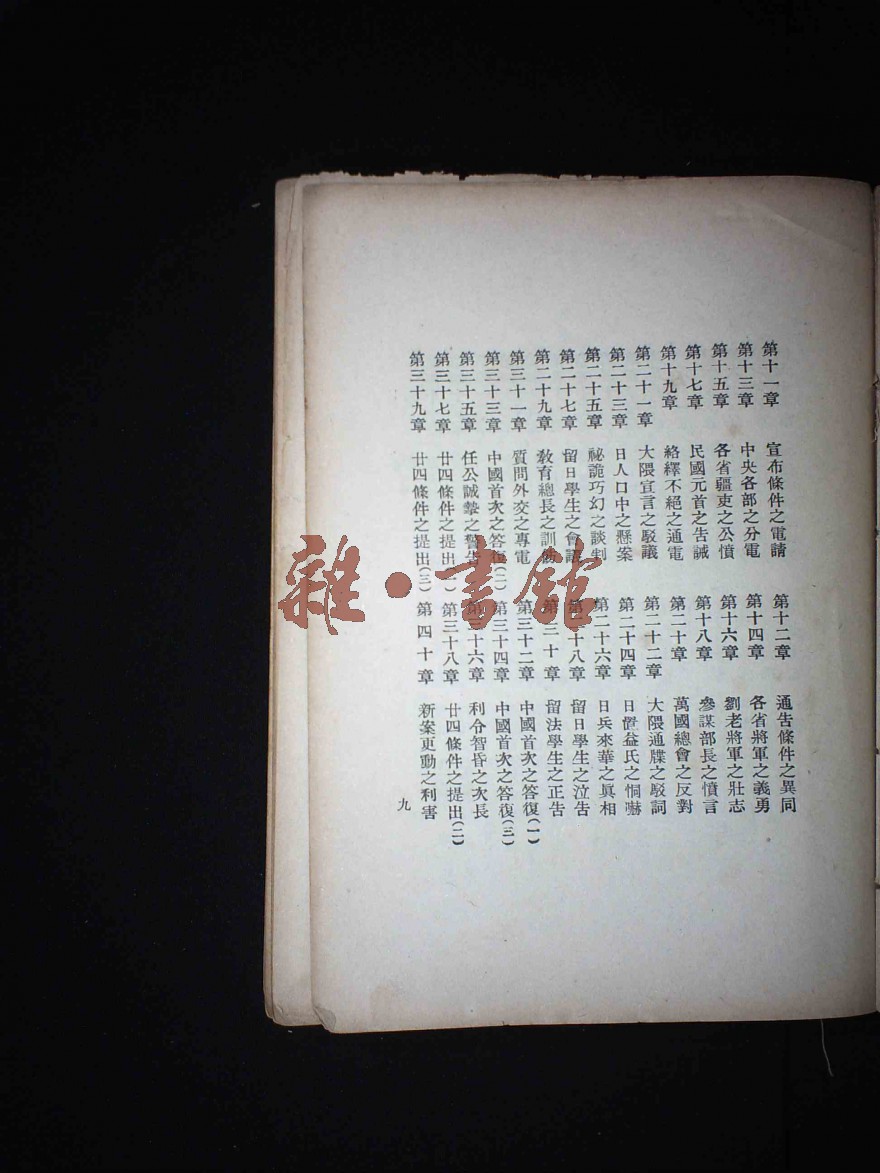 第十一章　宣布條件之電請　第十二章　通告條件之異同
第十三章　中央各部之分電　第十四章　各省將軍之義勇
第十五章　各省疆吏之公憤　第十六章　劉老將軍之壯志
第十七章　民國元首之告誡　第十八章　參謀部長之憤言
第十九章　絡繹不絕之通電　第二十章　萬國總會之反對
第二十一章　大隈宣言之駁議　第二十二章　大隈通牒之駁詞
第二十三章　日人口中之懸案　第二十四章　日置益氏之恫嚇
第二十五章　祕詭巧幻之談判　第二十六章　日兵來華之眞相
第二十七章　留日學生之會議　第二十八章　留日學生之泣告
第二十九章　敎育總長之訓飭　第三十章　留法學生之正告
第三十一章　質問外交之專電　第三十二章　中國首次之答復(一)
第三十三章　中國首次之答復(二)　第三十四章　中國首次之答復(三)
第三十五章　任公誠摯之警告　第三十六章　利令智昏之次長
第三十七章　廿四條件之提出(一)　第三十八章　廿四條件之提出(二)
第三十九章　廿四條件之提出(三)　第四十章　新案更動之利害
九
雜·書館